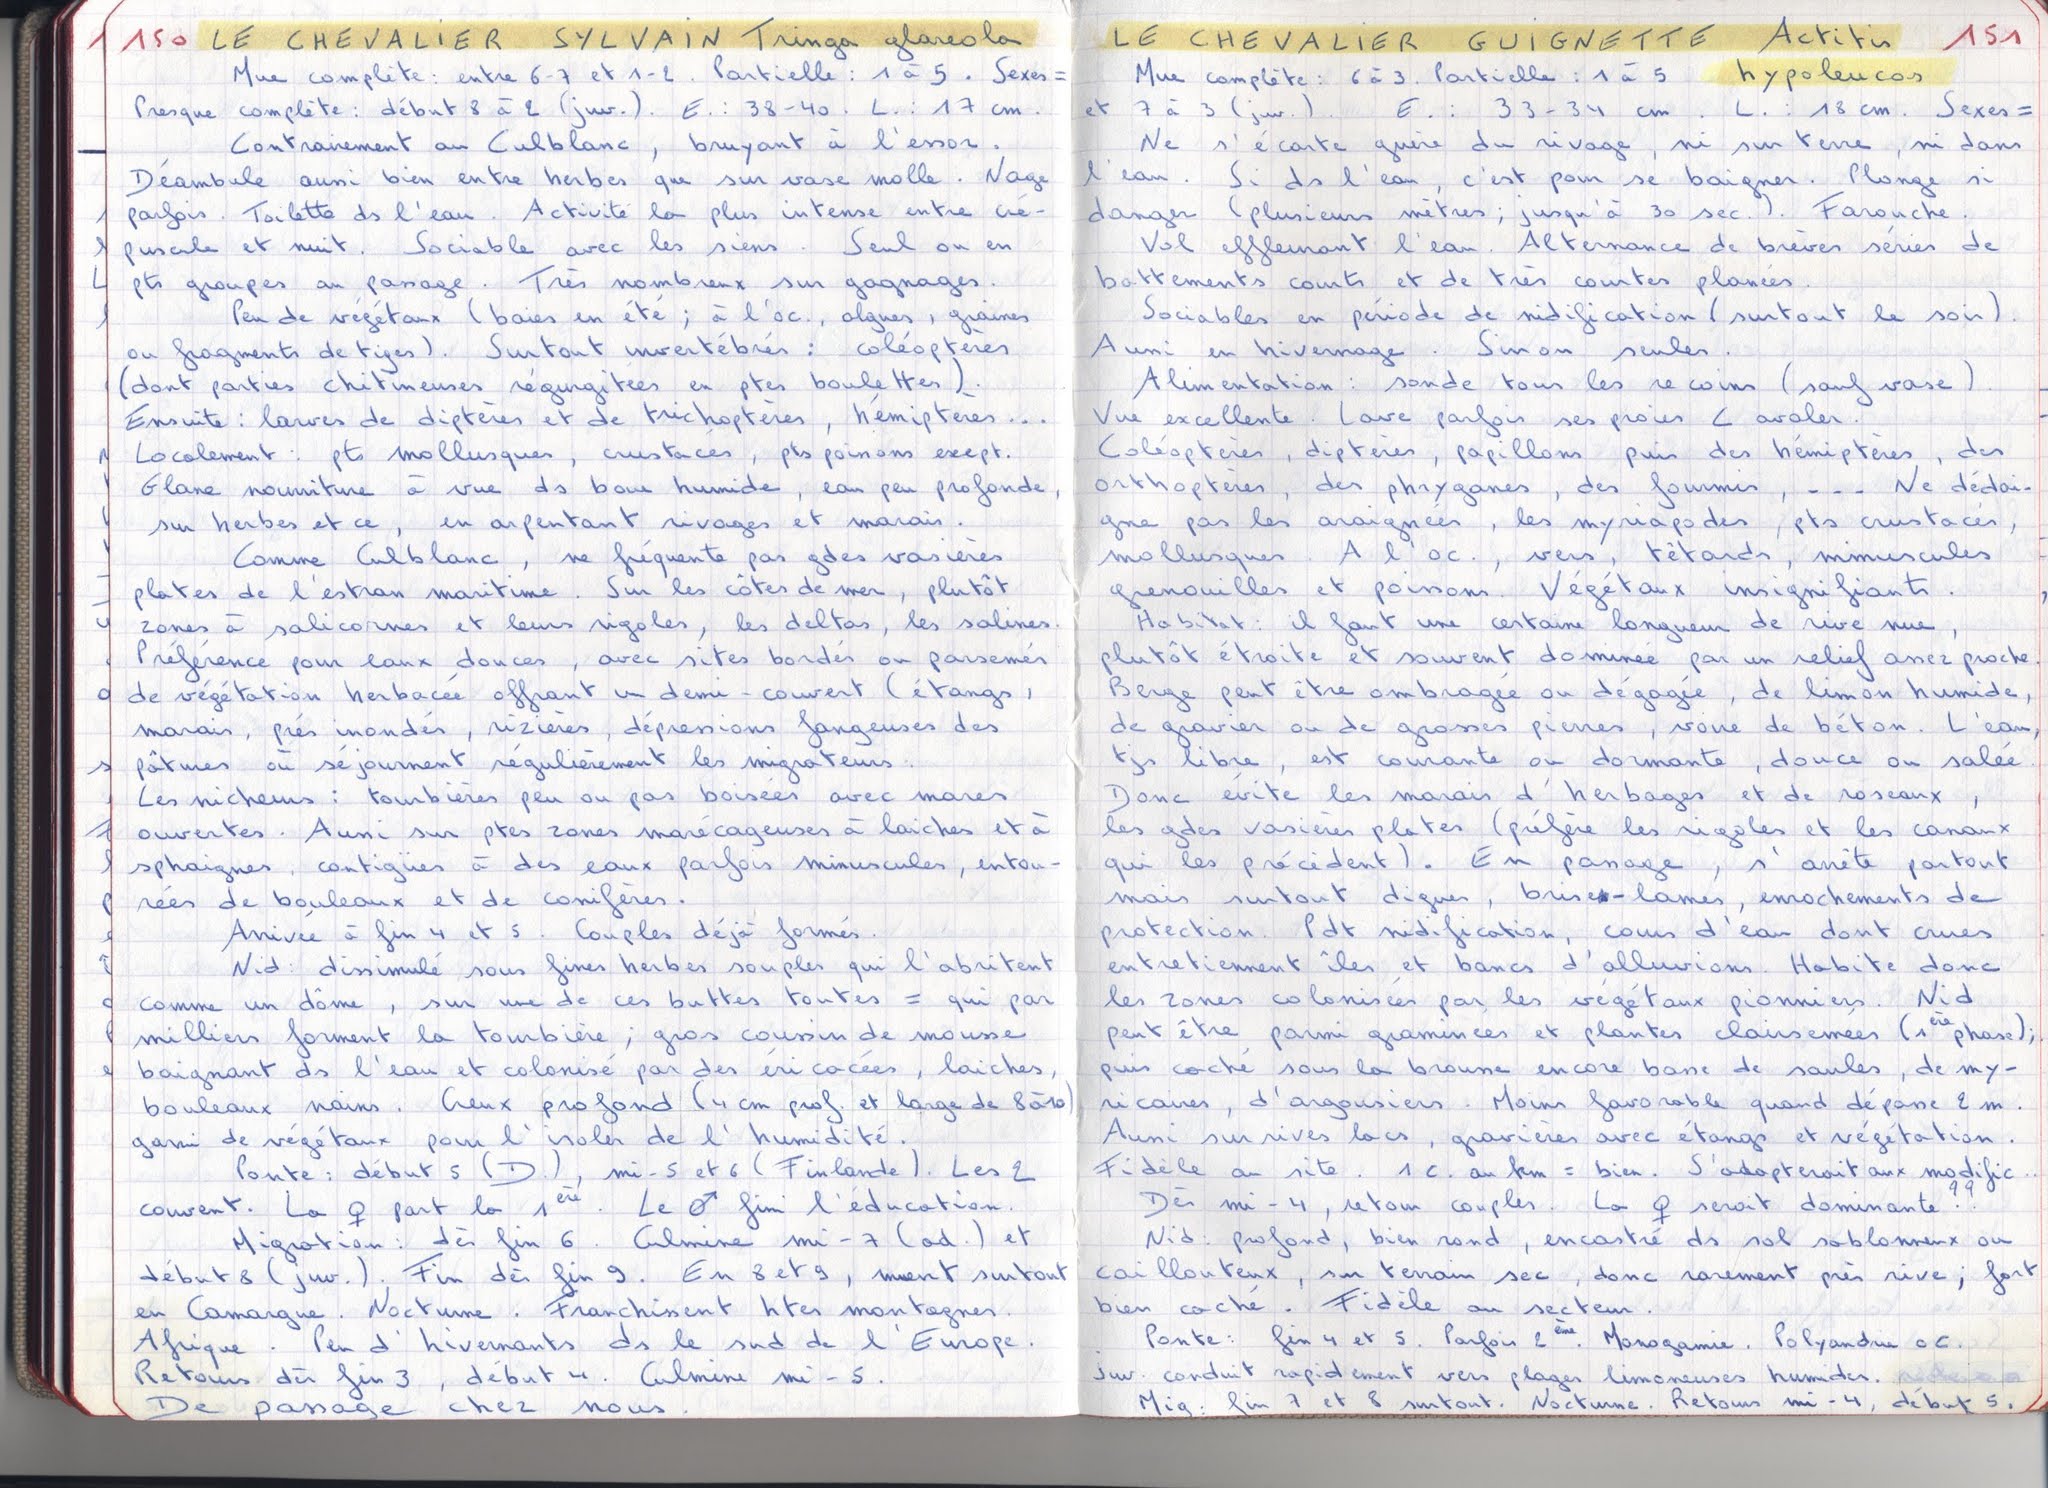 150 LE CHEVALIER SYLVAIN Tringa glareola
Mue complète : entre 6-7 et 1-2. Partielle : 1 à 5. Sexes =
Presque complète : début 8 à 2 (juv.). E. : 38-40. L. : 17 cm.
Contrairement au Culblanc, bruyant à l'essor.
Déambule aussi bien entre herbes que sur vase molle. Nage
parfois. Toilette ds l'eau. Activité la plus intense entre cré-
puscule et nuit. Sociable avec les siens. Seul ou en
pts groupes au passage. Très nombreux sur gagnages.
Peu de végétaux (baies en été ; à l'oc., algues, graines
ou fragments de tiges). Surtout invertébrés : coléoptères
(dont parties chitineuses régurgitées en ptes boulettes).
Ensuite : larves de diptères et de trichoptères, hémiptères...
Localement : pts mollusques, crustacés, pts poissons except.
Glane nourriture à vue ds boue humide, eau peu profonde,
sur herbes et ce, en arpentant rivages et marais.
Comme Culblanc, ne fréquente pas gdes vasières
plates de l'estran maritime. Sur les côtes de mer, plutôt
zones à salicornes et leurs rigoles, les deltas, les salines.
Préférence pour eaux douces, avec sites bordés ou parsemés
de végétation herbacée offrant un demi-couvert (étangs,
marais, prés inondés, rizières, dépressions fangeuses des
pâtures où séjournent régulièrement les migrateurs.
Les nicheurs : tourbières peu ou pas boisées avec mares
ouvertes. Aussi sur ptes zones marécageuses à laiches et à
sphaignes, contigües à des eaux parfois minuscules, entou-
rées de bouleaux et de conifères.
Arrivée à fin 4 et 5. Couples déjà formés.
Nid : dissimulé sous fines herbes souples qui l'abritent
comme un dôme, sur une de ces buttes toutes = qui par
milliers forment la tourbière ; gros coussin de mousse
baignant ds l'eau et colonisé par des éricacées, laiches,
bouleaux nains. Creux profond (4 cm prof. et large de 8 à 10)
garni de végétaux pour l'isoler de l'humidité.
Ponte : début 5 (D.), mi-5 et 6 (Finlande). Les 2
couvent. La ♀ part la 1ère. Le ♂ fini l'éducation.
Migration : dès fin 6. Culmine mi-7 (ad.) et
début 8 (juv.). Fin dès fin 9. En 8 et 9, muent surtout
en Camargue. Nocturne. Franchissent htes montagnes.
Afrique. Peu d'hivernants ds le sud de l'Europe.
Retours dès fin 3, début 4. Culmine mi-5.
De passage chez nous.
LE CHEVALIER GUIGNETTE Actitis 151
Mue complète : 6 à 3. Partielle : 1 à 5 hypoleucos
et 7 à 3 (juv.). E. : 33-34 cm. L. : 18 cm. Sexes =
Ne s'écarte guère du rivage, ni sur terre, ni dans
l'eau. Si ds l'eau, c'est pour se baigner. Plonge si
danger (plusieurs mètres ; jusqu'à 30 sec.). Farouche.
Vol effleurant l'eau. Alternance de brèves séries de
battements courts et de très courtes planées.
Sociables en période de nidification (surtout le soir).
Aussi en hivernage. Sinon seules.
Alimentation : sonde tous les recoins (sauf vase).
Vue excellente. Lave parfois ses proies < avaler.
Coléoptères, diptères, papillons puis des hémiptères, des
orthoptères, des phryganes, des fourmis, --- Ne dédai-
gne pas les araignées, les myriapodes, pts crustacés,
mollusques. A l'oc., vers, têtards, minuscules
grenouilles et poissons. Végétaux insignifiants.
Habitat : il faut une certaine longueur de rive nue,
plutôt étroite et souvent dominée par un relief assez proche.
Berge peut être ombragée ou dégagée, de limon humide,
de gravier ou de grosses pierres, voire de béton. L'eau,
tjs libre, est courante ou dormante, douce ou salée.
Donc évite les marais d'herbages et de roseaux,
les gdes vasières plates (préfère les rigoles et les canaux
qui les précèdent). En passage, s'arrête partout
mais surtout digues, brise-lames, enrochements de
protection. Pdt nidification, cours d'eau dont crues
entretiennent îles et bancs d'alluvions. Habite donc
les zones colonisées par les végétaux pionniers. Nid
peut être parmi graminées et plantes clairsemées (1ère phase) ;
puis caché sous la brousse encore basse de saules, de my-
ricaires, d'argousiers. Moins favorable quand dépasse 2 m.
Aussi sur rives lacs, gravières avec étangs et végétation.
Fidèle au site. 1 c. au km = bien. S'adapterait aux modific..
Dès mi-4, retour couples. La ♀ serait dominante ??
Nid : profond, bien rond, encastré ds sol sablonneux ou
caillouteux, sur terrain sec, donc rarement près rive ; fort
bien caché. Fidèle au secteur.
Ponte : fin 4 et 5. Parfois 2ème. Monogamie. Polyandrie oc.
juv. conduit rapidement vers plages limoneuses humides.
Mig : fin 7 et 8 surtout. Nocturne. Retours mi-4, début 5.